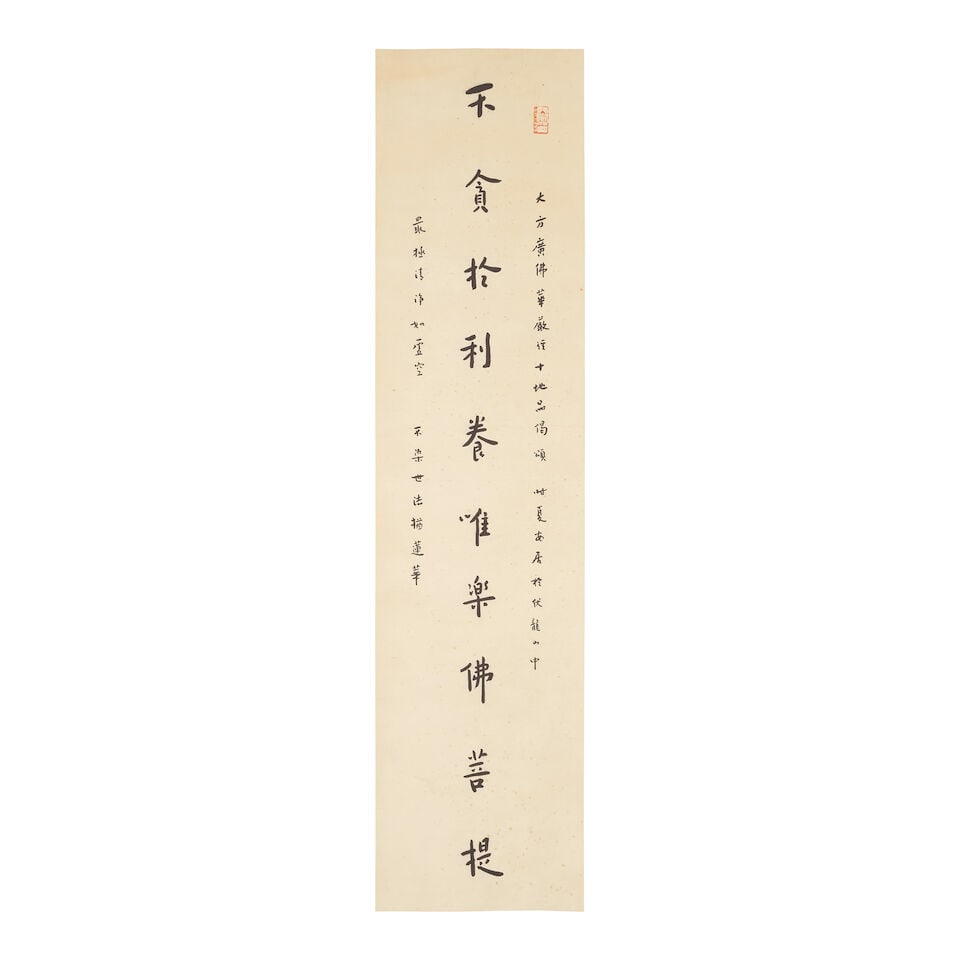 大方廣佛華嚴經十地品偈頌 時夏安居於伏龍山中
不貪於利養唯樂佛菩提
最極清淨如虛空 不染世法猶蓮華